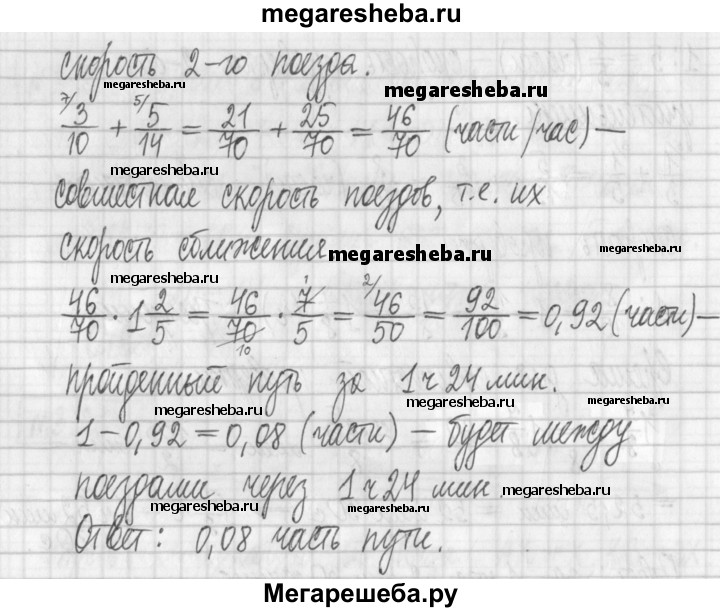 megaresheba.ru
скорость 2-го поезда.
megaresheba.ru
megaresheba.ru
7/3/10 + 5/5/14 = 21/70 + 25/70 = 46/70 (части/час) —
megaresheba.ru
совместная скорость поездов, т.е. их
скорость сближения
megaresheba.ru
megaresheba.ru
megaresheba.ru
46/70 · 1 2/5 = 46/70 · 7/5 = 2/46/50 = 92/100 = 0,92 (части) —
10
1
пройденный путь за 1 ч 24 мин.
megaresheba.ru
megaresheba.ru
megaresheba.ru
1 – 0,92 = 0,08 (части) — будет между
поездами через 1 ч 24 мин
megaresheba.ru
megaresheba.ru
Ответ: 0,08 часть пути.
Мегарешеба.ру